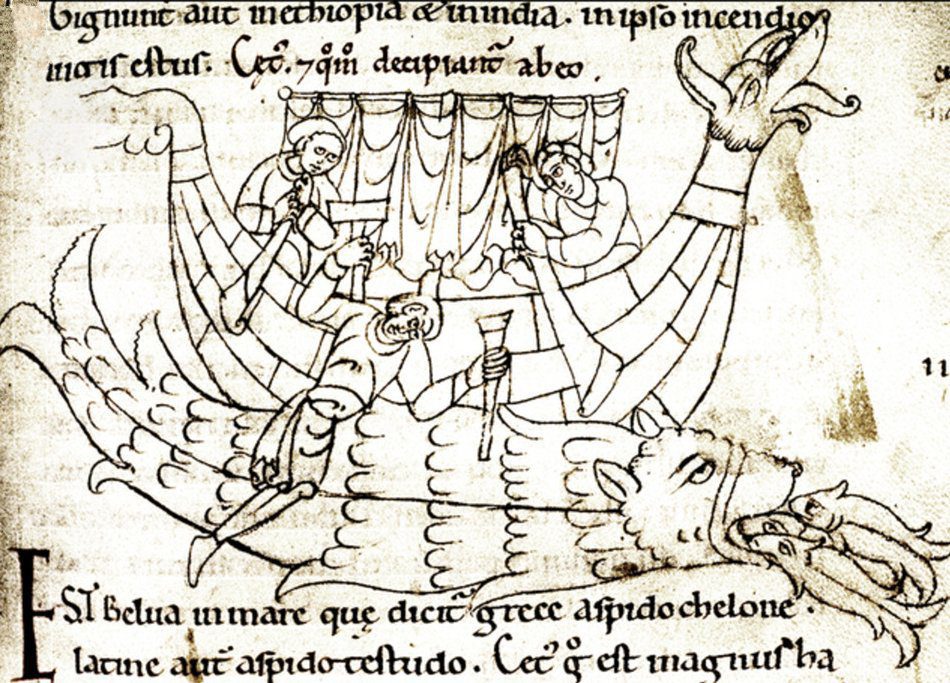 Gignunt aut inethiopia & inindia. inipso incendio
iugis estus. Cet᾽. ⁊ qm̄ decipiant̄ abeo.
EST Belua inmare quę dicit̄ grece aspidochelone.
latine aut̄ aspidotestudo. Cet᾽ g̊ est magnus ha